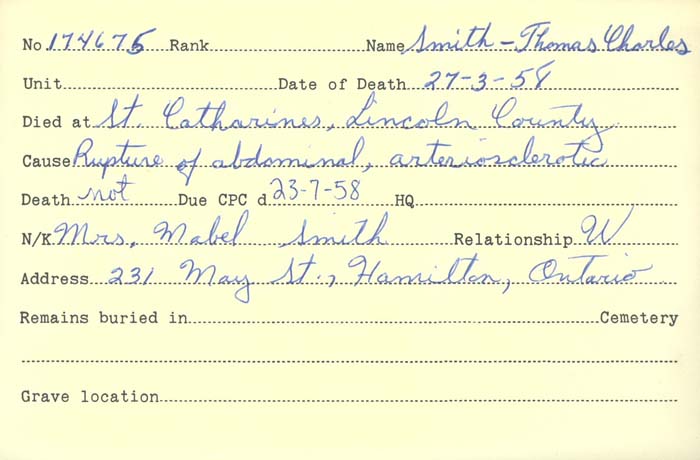 No. 174675 Rank Name Smith - Thomas Charles
Unit Date of Death 27-3-58
Died at St. Catharines, Lincoln County
Cause Rupture of abdominal, arteriosclerotic
Death not Due CPC d 23-7-58 HQ
N/K Mrs. Mabel Smith Relationship W
Address 231 May St., Hamilton, Ontario
Remains buried in Cemetery
Grave location